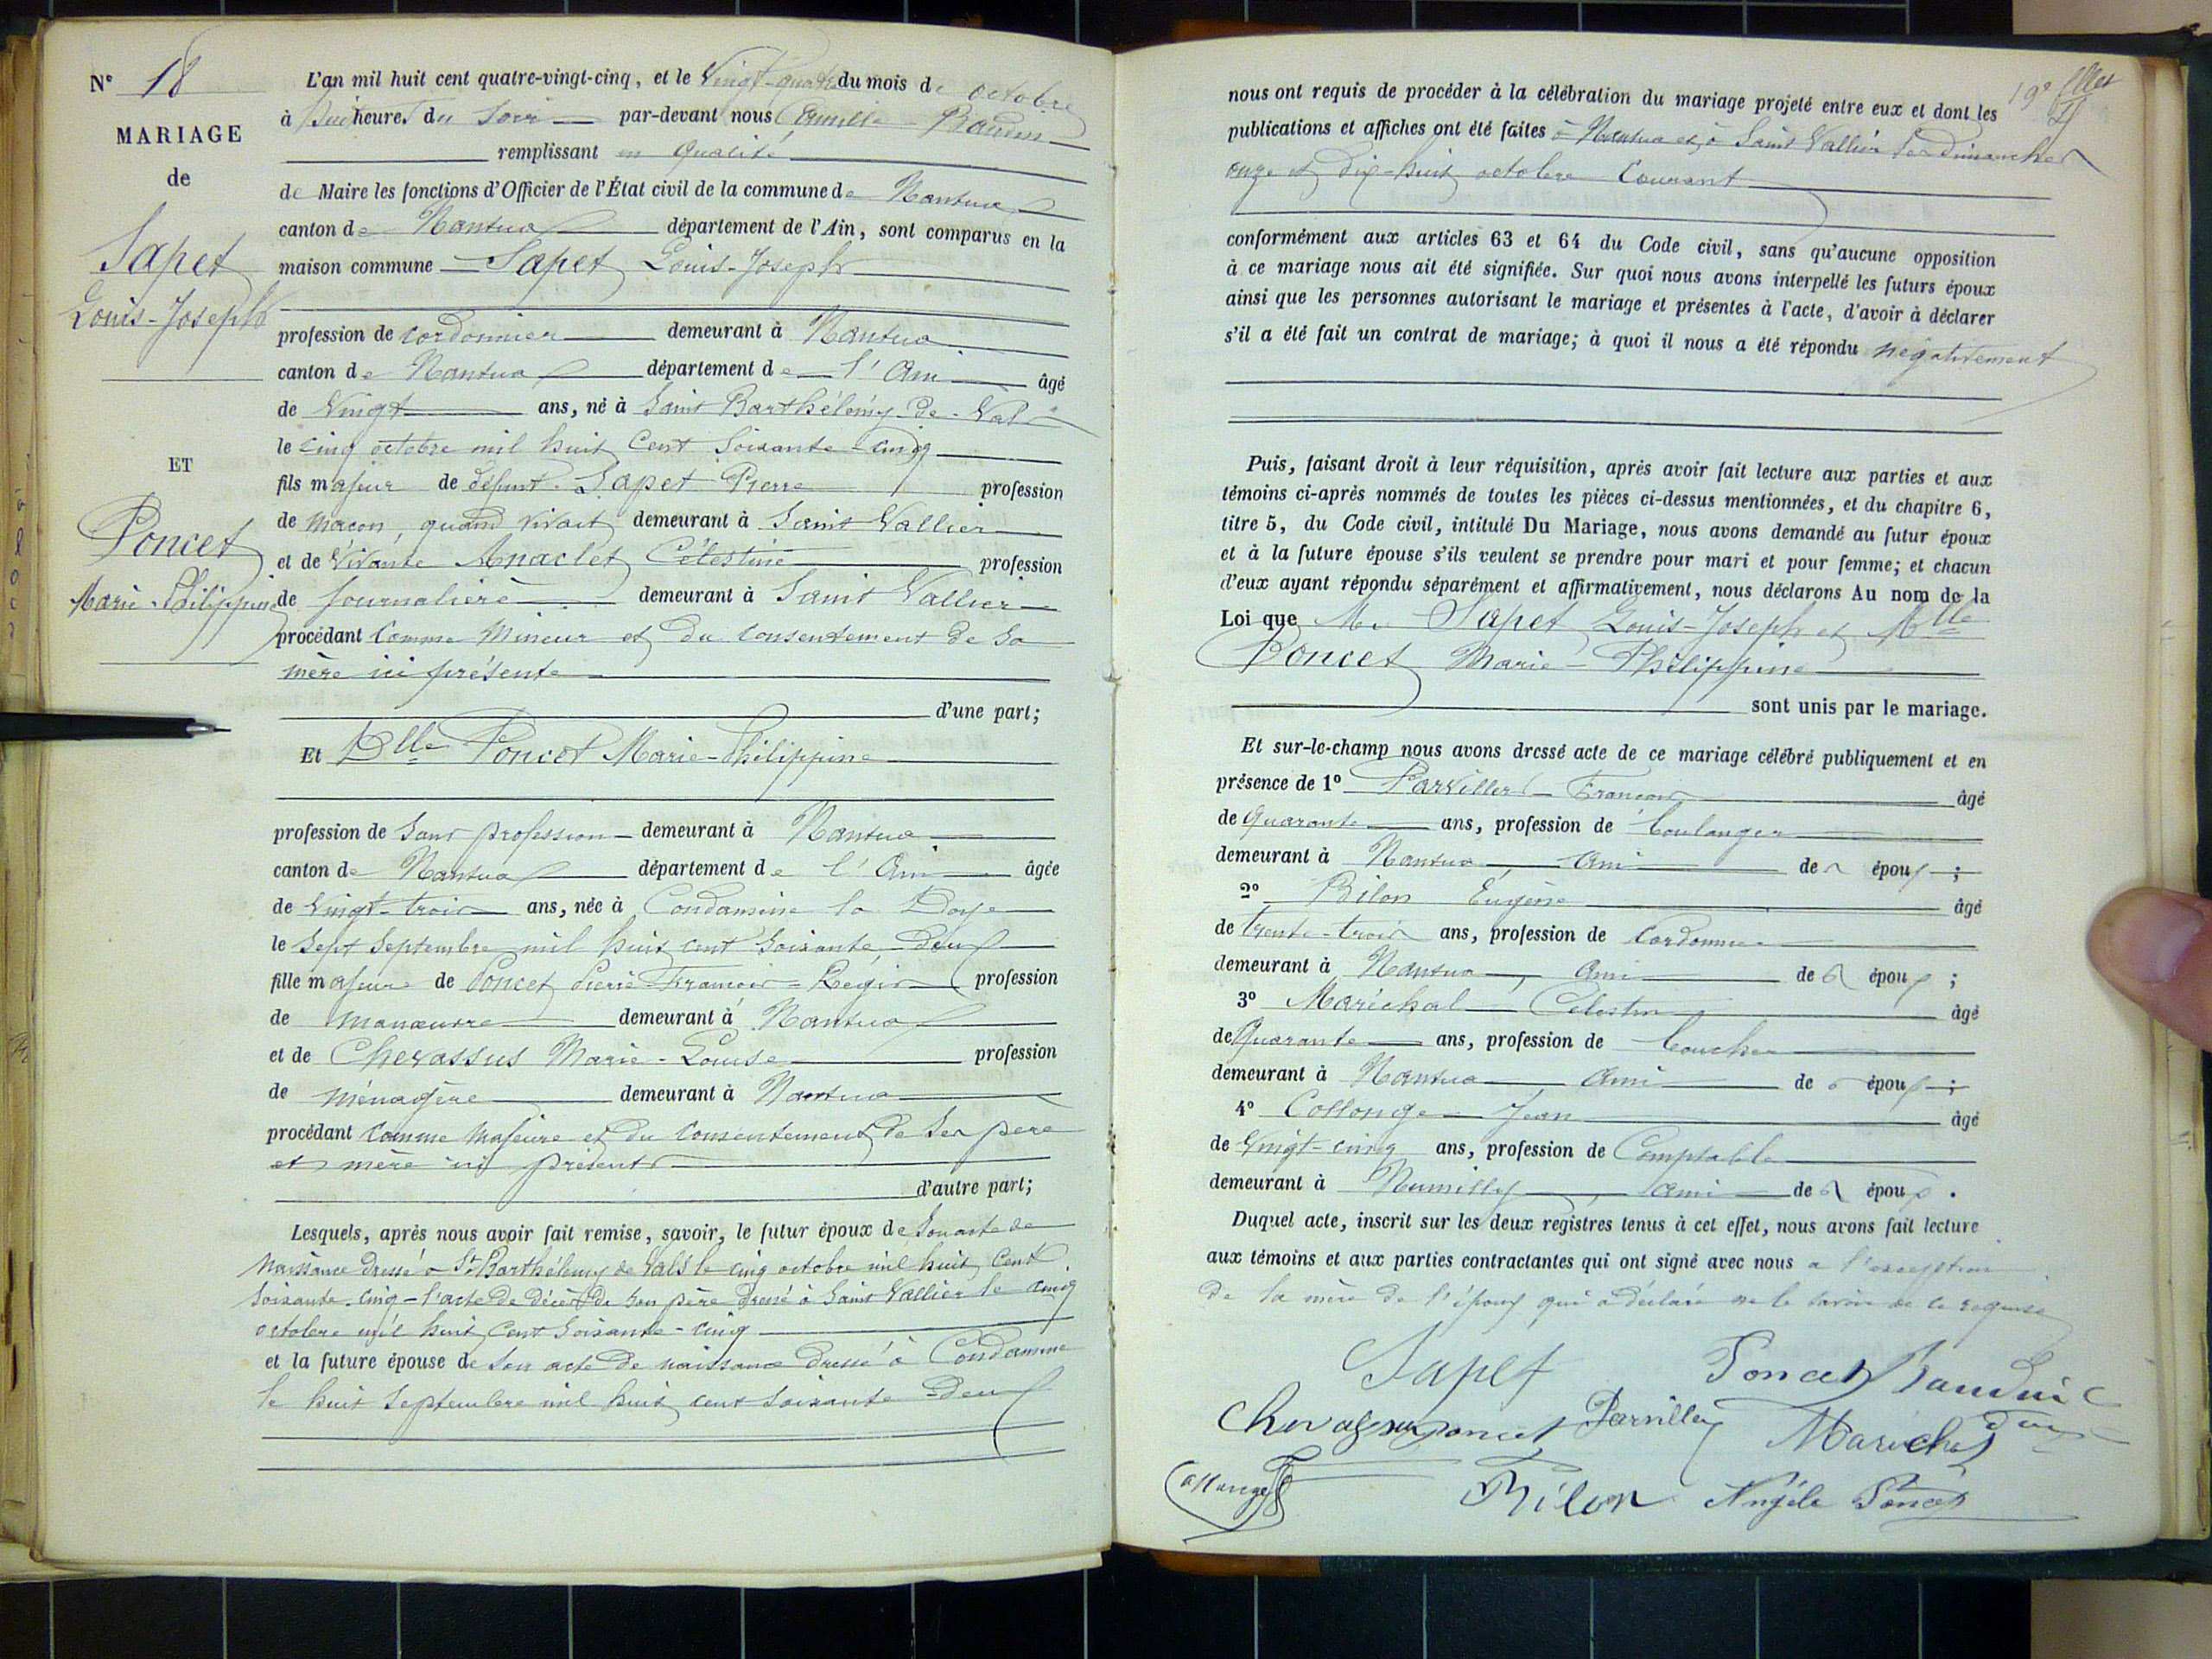 N° 18
MARIAGE
de
Sapet
Louis-Joseph
ET
Poncet
Marie-Philippine
L'an mil huit cent quatre-vingt-cinq, et le Vingt-quatre du mois de octobre
à huit heures du soir par-devant nous Camille Baudin
remplissant en qualité
de Maire les fonctions d'Officier de l'État civil de la commune de Nantua
canton de Nantua département de l'Ain, sont comparus en la
maison commune Sapet Louis-Joseph
profession de cordonnier demeurant à Nantua
canton de Nantua département de l'Ain âgé
de Vingt ans, né à Saint Barthélémy-de-Vals
le cinq octobre mil huit cent soixante-cinq
fils majeur de défunt Sapet Pierre profession
de maçon, quand vivait demeurant à Saint Vallier
et de vivante Anaclet Célestine profession
de journalière demeurant à Saint Vallier
procédant comme mineur et du consentement de sa
mère ici présente
d'une part;
Et Dlle Poncet Marie-Philippine
profession de sans profession demeurant à Nantua
canton de Nantua département de l'Ain âgée
de vingt-trois ans, née à Condamine la Doye
le sept septembre mil huit cent soixante deux
fille majeure de Poncet Pierre-François-Régis profession
de manœuvre demeurant à Nantua
et de Chevassus Marie-Louise profession
de ménagère demeurant à Nantua
procédant comme majeure et du consentement de ses père
et mère ici présents
d'autre part;
Lesquels, après nous avoir fait remise, savoir, le futur époux de son acte de
naissance dressé à St Barthélemy de Vals le cinq octobre mil huit cent
soixante-cinq - l'acte de décès de son père dressé à Saint Vallier le cinq
octobre mil huit cent soixante-cinq
et la future épouse de son acte de naissance dressé à Condamine
le huit septembre mil huit cent soixante-deux
19e fllet
nous ont requis de procéder à la célébration du mariage projeté entre eux et dont les
publications et affiches ont été faites à Nantua et à Saint Vallier les dimanches
onze et dix-huit octobre courant
conformément aux articles 63 et 64 du Code civil, sans qu'aucune opposition
à ce mariage nous ait été signifiée. Sur quoi nous avons interpellé les futurs époux
ainsi que les personnes autorisant le mariage et présentes à l'acte, d'avoir à déclarer
s'il a été fait un contrat de mariage; à quoi il nous a été répondu négativement
Puis, faisant droit à leur réquisition, après avoir fait lecture aux parties et aux
témoins ci-après nommés de toutes les pièces ci-dessus mentionnées, et du chapitre 6,
titre 5, du Code civil, intitulé Du Mariage, nous avons demandé au futur époux
et à la future épouse s'ils veulent se prendre pour mari et pour femme; et chacun
d'eux ayant répondu séparément et affirmativement, nous déclarons Au nom de la
Loi que Mr Sapet Louis-Joseph et Mlle
Poncet Marie-Philippine
sont unis par le mariage.
Et sur-le-champ nous avons dressé acte de ce mariage célébré publiquement et en
présence de 1° Parvillers François âgé
de quarante ans, profession de boulanger
demeurant à Nantua, ami des époux;
2° Bilon Eugène âgé
de trente-trois ans, profession de cordonnier
demeurant à Nantua, ami des époux;
3° Maréchal Célestin âgé
de Quarante ans, profession de boucher
demeurant à Nantua ami des époux;
4° Collonge Jean âgé
de vingt-cinq ans, profession de Comptable
demeurant à Rumilly, ami des époux.
Duquel acte, inscrit sur les deux registres tenus à cet effet, nous avons fait lecture
aux témoins et aux parties contractantes qui ont signé avec nous à l'exception
de la mère de l'époux qui a déclaré ne le savoir de ce requise
Sapet Poncet Baudin
Chevassus Poncet Parvillers Maréchal
Collonge Bilon Angèle Poncet